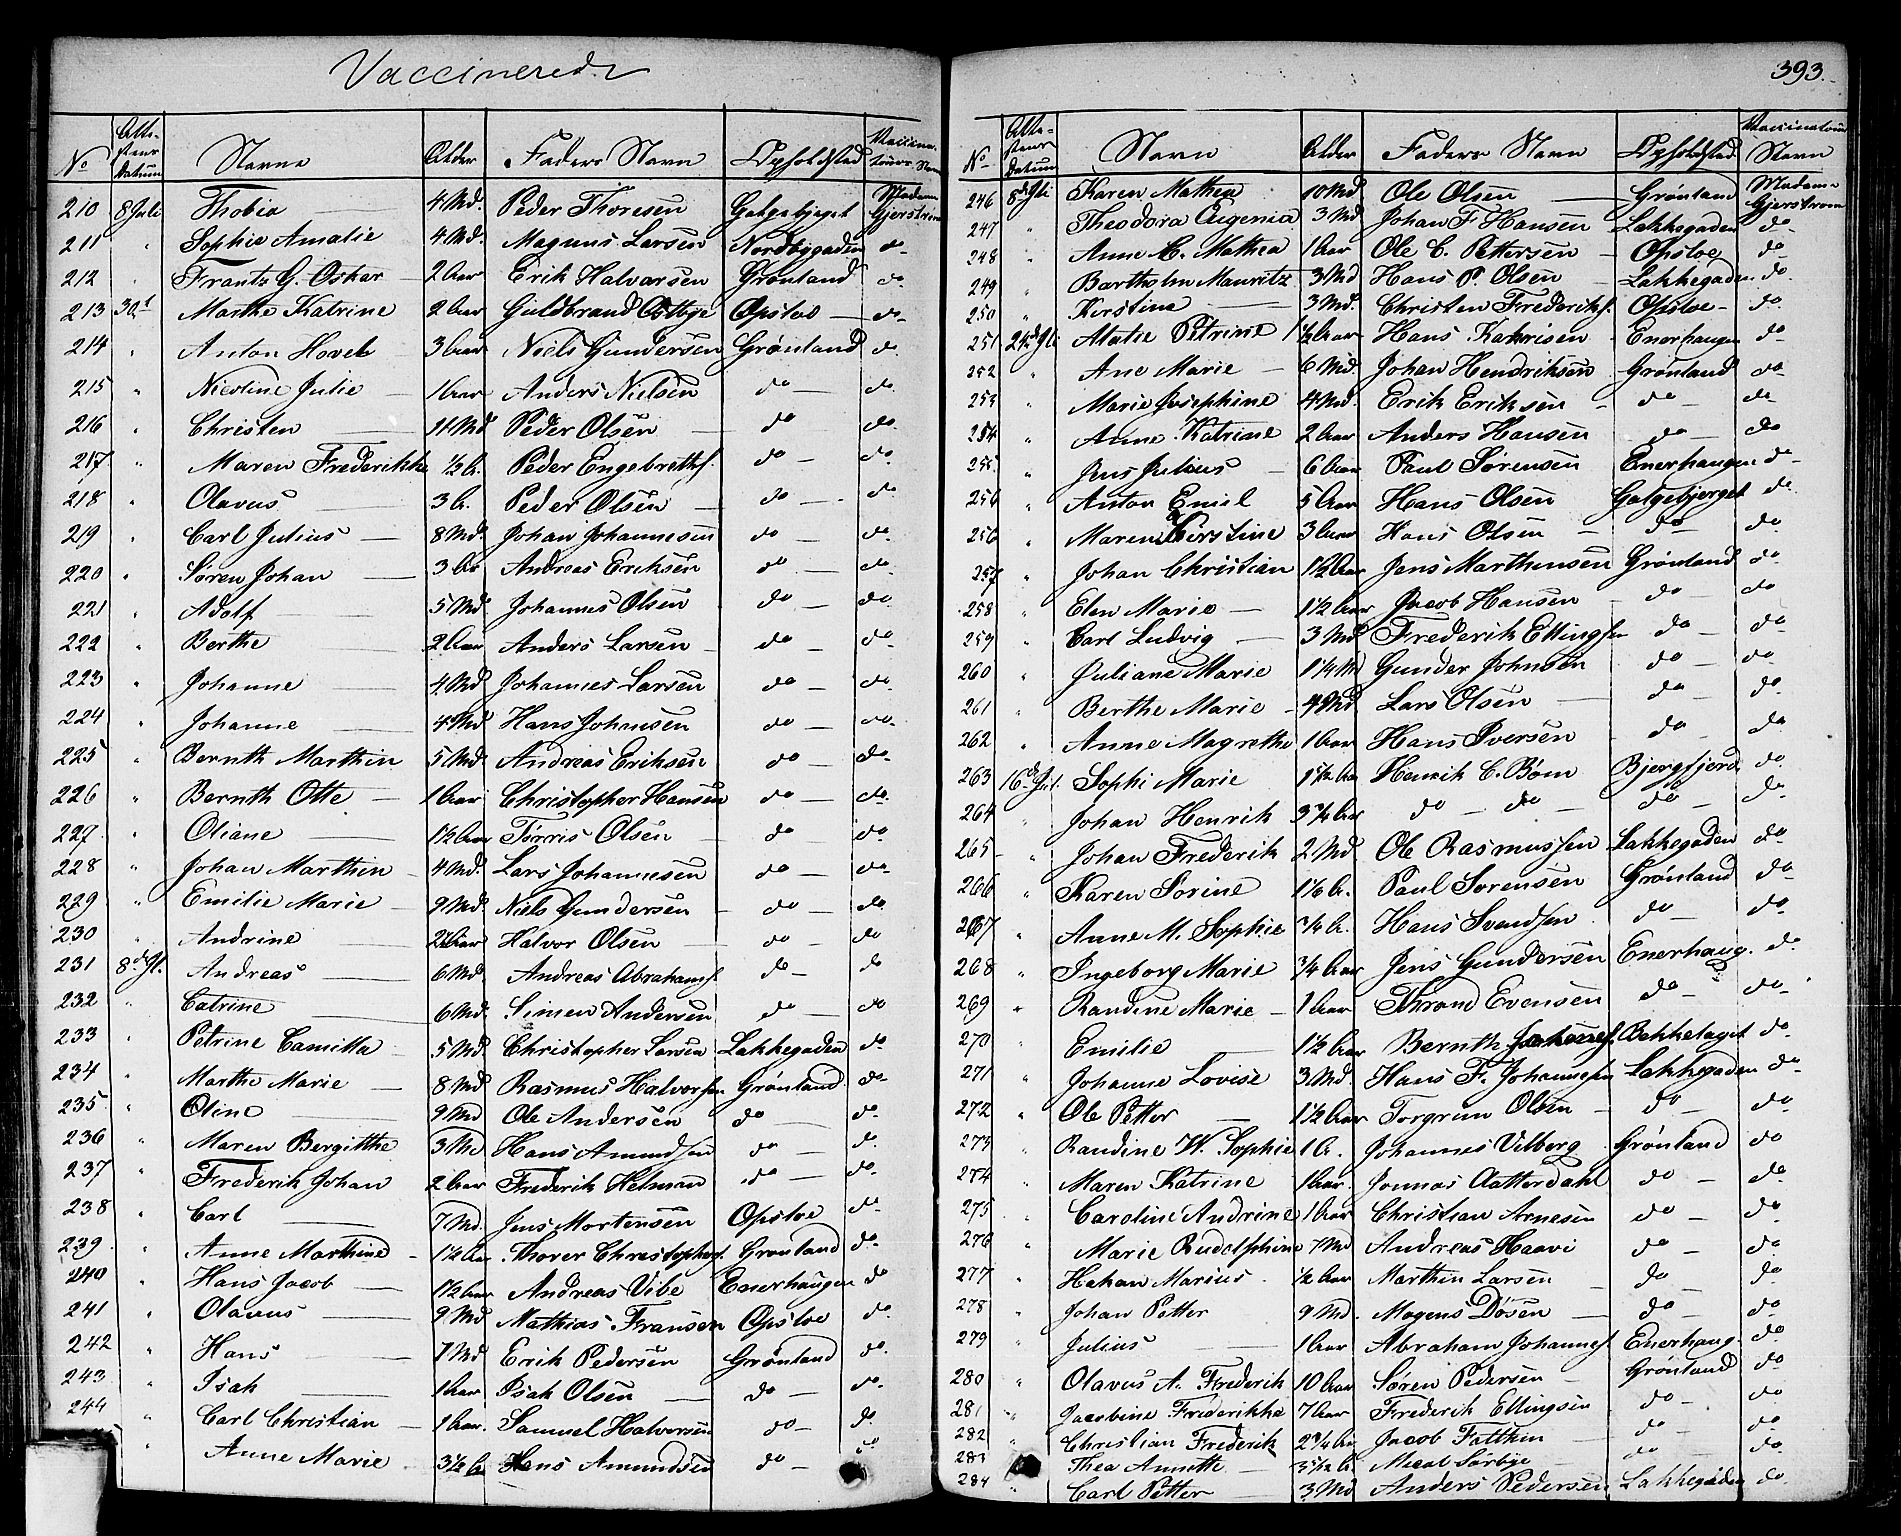 Vaccinerede
393.
No Attestens Datum Navne Alder Faders Navn Opholdsted Vaccinatours Navn
210 8 Juli Thobia 4 Md. Peder Thoresen Galgebjeget Madam Gjerstrøm
211 " Sophie Amalie 4 Md. Magnus Larsen Nordbygaden do
212 " Frantz G. Oskar 2 Aar Erik Halvorsen Grønland do
213 30t Marthe Katrine 2 Aar Guldbrand Østbye Opsloe do
214 " Anton Hovel 3 Aar Niels Gundersen Grønland do
215 " Nicoline Julie 1 Aar Anders Nielsen do do
216 " Christen 11 Md Peder Olsen do do
217 " Maren Frederikke ½ A. Peder Engebrethsf. do do
218 " Olavus 3 A. Peder Olsen do do
219 " Carl Julius 8 Md. Johan Johannesen do do
220 " Søren Johan 3 Aar Andreas Eriksen do do
221 " Adolf 5 Md. Johannes Olsen do do
222 " Berthe 2 Aar Anders Larsen do do
223 " Johanne 4 Md Johannes Larsen do do
224 " Johanne 4 Md Hans Johansen do do
225 " Bernth Marthin 5 Md. Andreas Eriksen do do
226 " Bernth Otte 1 Aar Christopher Hansen do do
227 " Oliane 1½ Aar Tørris Olsen do do
228 " Johan Marthin 4 Md. Lars Johannesen do do
229 " Emilie Marie 9 Md. Niels Gundersen do do
230 " Andrine Halvor Olsen do do
231 8de Jl. Andreas 6 Md. Andreas Abrahamsf do do
232 " Catrine 6 Md. Simen Andersen do do
233 " Petrine Camilla 5 Md. Christopher Larsen Lakkegaden do
234 " Marthe Marie 8 Md Rasmus Halvorsen Grønland do
235 " Oline 9 Md Ole Andersen do do
236 " Maren Bergitthe 3 Md Hans Amundsen do do
237 " Frederik Johan 2 Aar Frederik Helman do do
238 " Carl 7 Md. Jens Mortensen Opsloe do
239 " Anne Marthine 1½ Aar Thorer Christophersf Grønland do
240 " Hans Jacob 1½ Aar Andreas Vibe Enerhaugen do
241 " Olavus 9 Md Mathias Fransen Opsloe do
242 " Hans 7 Md Erik Pedersen Grønland do
243 " Isak 1 Aar Isak Olsen do do
244 " Carl Christian 1 Aar. Samuel Halvorsen do do
" Anne Marie 3½ A Hans Amundsen do do
No Attestens Datum Navn Alder Faders Navn Opholdsted Vaccinatours Navn
246 8de Jli Karen Mathea 10 Md Ole Olsen Grønland Madame Gjerstrøm
247 " Theodora Eugenia 3 Md Johan F Hansen Lakkegaden do
248 " Anne C. Mathea 1 Aar Ole C. Pettersen Opsloe do
249 " Bartholm Mauritz 3 Md Hans P. Olsen Lakkegaden do
250 " Kirstine 3 Md. Christen Frederiksf. Opsloe do
251 24de Jli Alatie Petrine 1½ Aar Hans Enerhaugen do
252 " Ane Marie 6 Md. Johan Hendriksen Grønland do
253 " Marie Josephine 4 Md. Erik Eriksen do do
254 " Anne Katrine 2 Aar Anders Hansen do do
255. " Jens Julius 6 Aar Paul Sørensen Enerhaugen do
256 " Anton Emil 5 Aar Hans Olsen Galgebjerget do
256 " Maren Kirstine 3 Aar Hans Olsen do do
257 " Johan Christian 1½ Aar Jens Marthinsen Grønland do
258 " Elen Marie 1½ Aar Jacob Hansen do do
259 " Carl Ludvig 3 Md Frederik Ellingsen do do
260 " Juliane Marie 1¼ Gunder Johnsen do do
261 " Berthe Marie 4 Md Lars Olsen do do
262 " Anne Magrethe 1 Aar Hans Iversen do do
263 16de Jul. Sophi Marie Henrik C. Bøm Bjergfjerd. do
264 Johan Henrik 3¾ Aar do do do do
265 " Johan Frederik 2 Md Ole Rasmussen Lakkegaden do
266 " Karen Sorine Paul Sørensen Grønland do
267 " Anne M. Sophie ¾ A. Hans Svendsen do do
268 " Ingeborg Marie ¾ Aar Jens Gundersen Enerhaug. do
269 " Randine Marie 1 Aar Thrond Evensen do do
270 " Emilie 1½ Aar Bernth Bakkelaget do
271 " Johanne Lovise 3 Md. Hans F. Johannesen Lakkegaden do
272 " Ole Petter 1½ Aar Torgrim Olsen do do
273 " Randine W. Sophie 1 A. Johannes Vilberg Grønland do
274 " Maren Katrine 1 Aar. Jonnas Aatterdahl do do
275 Caroline Andrine 1 Aar Christian Arnesen do do
276 " Marie Rudolphine 7 Md Andreas Haavi do do
277 " Hakan Marius ½ Aar Marthin Larsen do do
278 " Johan Petter 9 Md. Mogens Døsen do do
279 " Julius 1 Aar Abraham Johannesf Enerhaug. do
280 " Olavus A. Frederik 10 Aar Søren Pedersen Grønland do
281 " Jacobine Frederikke 7 Aar Frederik Ellingsen do do
282 " Christian Frederik 2¾ Aar Jacob Fatthin do do
283 Thea Annette Sørbye do do
284 " Carl Petter 3 Md Anders Pedersen Lakkegaden do